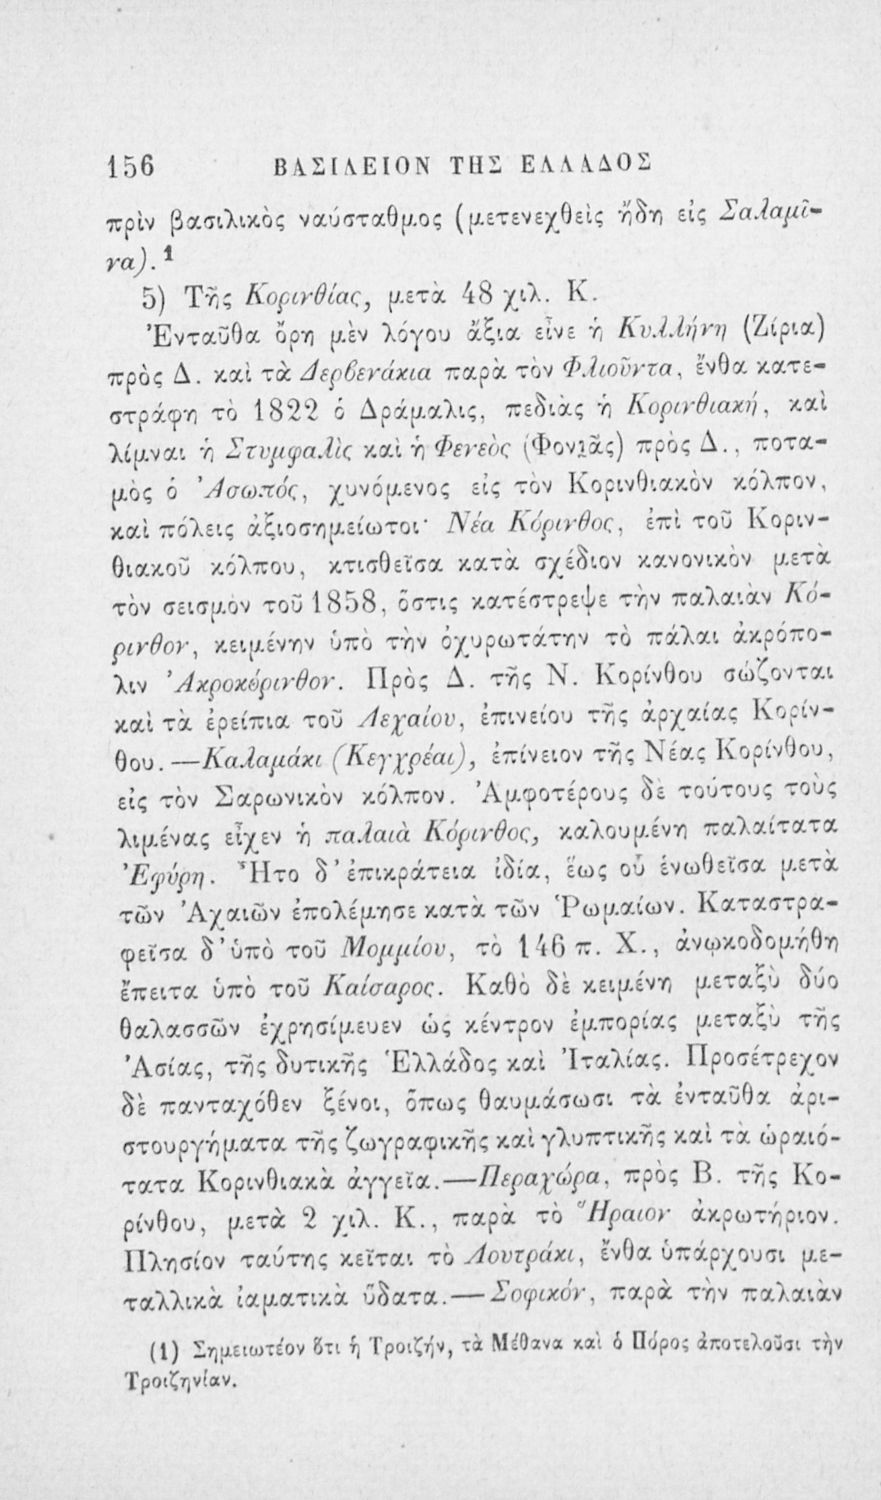 156 ΒΑΣΙΛΕΙΟΝ ΤΗΣ ΕΛΛΑΔΟΣ
πρὶν βασιλικὸς ναύσταθμος (μετενεχθεὶς ἤδη εἰς Σαλαμῖ-
να).¹
5) Τῆς Κορινθίας, μετὰ 48 χιλ. Κ.
Ἐνταῦθα ὄρη μὲν λόγου ἄξια εἶνε ἡ Κυλλήνη (Ζίρια)
πρὸς Δ. καὶ τὰ Δερβενάκια παρὰ τὸν Φλιοῦντα, ἔνθα κατε-
στράφη τὸ 1822 ὁ Δράμαλις, πεδιὰς ἡ Κορινθιακή, καὶ
λίμναι ἡ Στυμφαλὶς καὶ ἡ Φενεὸς (Φονιᾶς) πρὸς Δ., ποτα-
μὸς ὁ Ἀσωπός, χυνόμενος εἰς τὸν Κορινθιακὸν κόλπον,
καὶ πόλεις ἀξιοσημείωτοι· Νέα Κόρινθος, ἐπὶ τοῦ Κοριν-
θιακοῦ κόλπου, κτισθεῖσα κατὰ σχέδιον κανονικὸν μετὰ
τὸν σεισμὸν τοῦ 1858, ὅστις κατέστρεψε τὴν παλαιὰν Κό-
ρινθον, κειμένην ὑπὸ τὴν ὀχυρωτάτην τὸ πάλαι ἀκρόπο-
λιν Ἀκροκόρινθον. Πρὸς Δ. τῆς Ν. Κορίνθου σώζονται
καὶ τὰ ἐρείπια τοῦ Λεχαίου, ἐπινείου τῆς ἀρχαίας Κορίν-
θου.—Καλαμάκι (Κεγχρέαι), ἐπίνειον τῆς Νέας Κορίνθου,
εἰς τὸν Σαρωνικὸν κόλπον. Ἀμφοτέρους δὲ τούτους τοὺς
λιμένας εἶχεν ἡ παλαιὰ Κόρινθος, καλουμένη παλαίτατα
Ἐφύρη. Ἦτο δ' ἐπικράτεια ἰδία, ἕως οὗ ἑνωθεῖσα μετὰ
τῶν Ἀχαιῶν ἐπολέμησε κατὰ τῶν Ῥωμαίων. Καταστρα-
φεῖσα δ' ὑπὸ τοῦ Μομμίου, τὸ 146 π. Χ., ἀνῳκοδομήθη
ἔπειτα ὑπὸ τοῦ Καίσαρος. Καθὸ δὲ κειμένη μεταξὺ δύο
θαλασσῶν ἐχρησίμευεν ὡς κέντρον ἐμπορίας μεταξὺ τῆς
Ἀσίας, τῆς δυτικῆς Ἑλλάδος καὶ Ἰταλίας. Προσέτρεχον
δὲ πανταχόθεν ξένοι, ὅπως θαυμάσωσι τὰ ἐνταῦθα ἀρι-
στουργήματα τῆς ζωγραφικῆς καὶ γλυπτικῆς καὶ τὰ ὡραιό-
τατα Κορινθιακὰ ἀγγεῖα.—Περαχώρα, πρὸς Β. τῆς Κο-
ρίνθου, μετὰ 2 χιλ. Κ., παρὰ τὸ Ἥραιον ἀκρωτήριον.
Πλησίον ταύτης κεῖται τὸ Λουτράκι, ἔνθα ὑπάρχουσι με-
ταλλικὰ ἰαματικὰ ὕδατα.—Σοφικόν, παρὰ τὴν παλαιὰν
(1) Σημειωτέον ὅτι ἡ Τροιζήν, τὰ Μέθανα καὶ ὁ Πόρος ἀποτελοῦσι τὴν
Τροιζηνίαν.